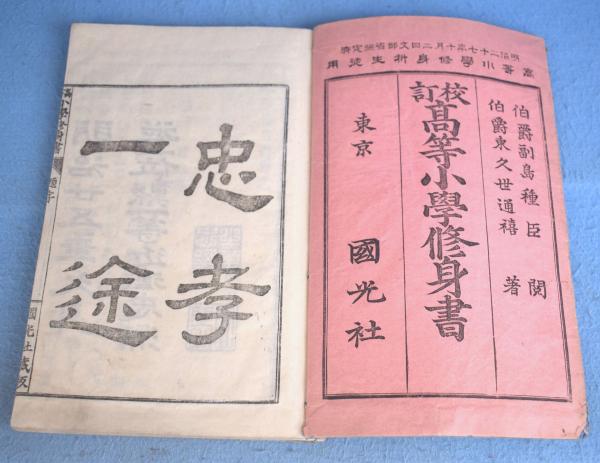 明治二十七年十月二四文部省検定済
高等小學修身科生徒用
伯爵副島種臣 閲
伯爵東久世通禧 著
校訂
高等小學修身書
東京 國光社
忠孝
一途
國光社蔵版